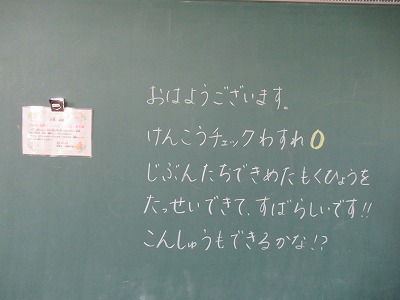 おはようございます。
けんこうチェックわすれ0
じぶんたちできめたもくひょうを
たっせいできて、すばらしいです!!
こんしゅうもできるかな!?